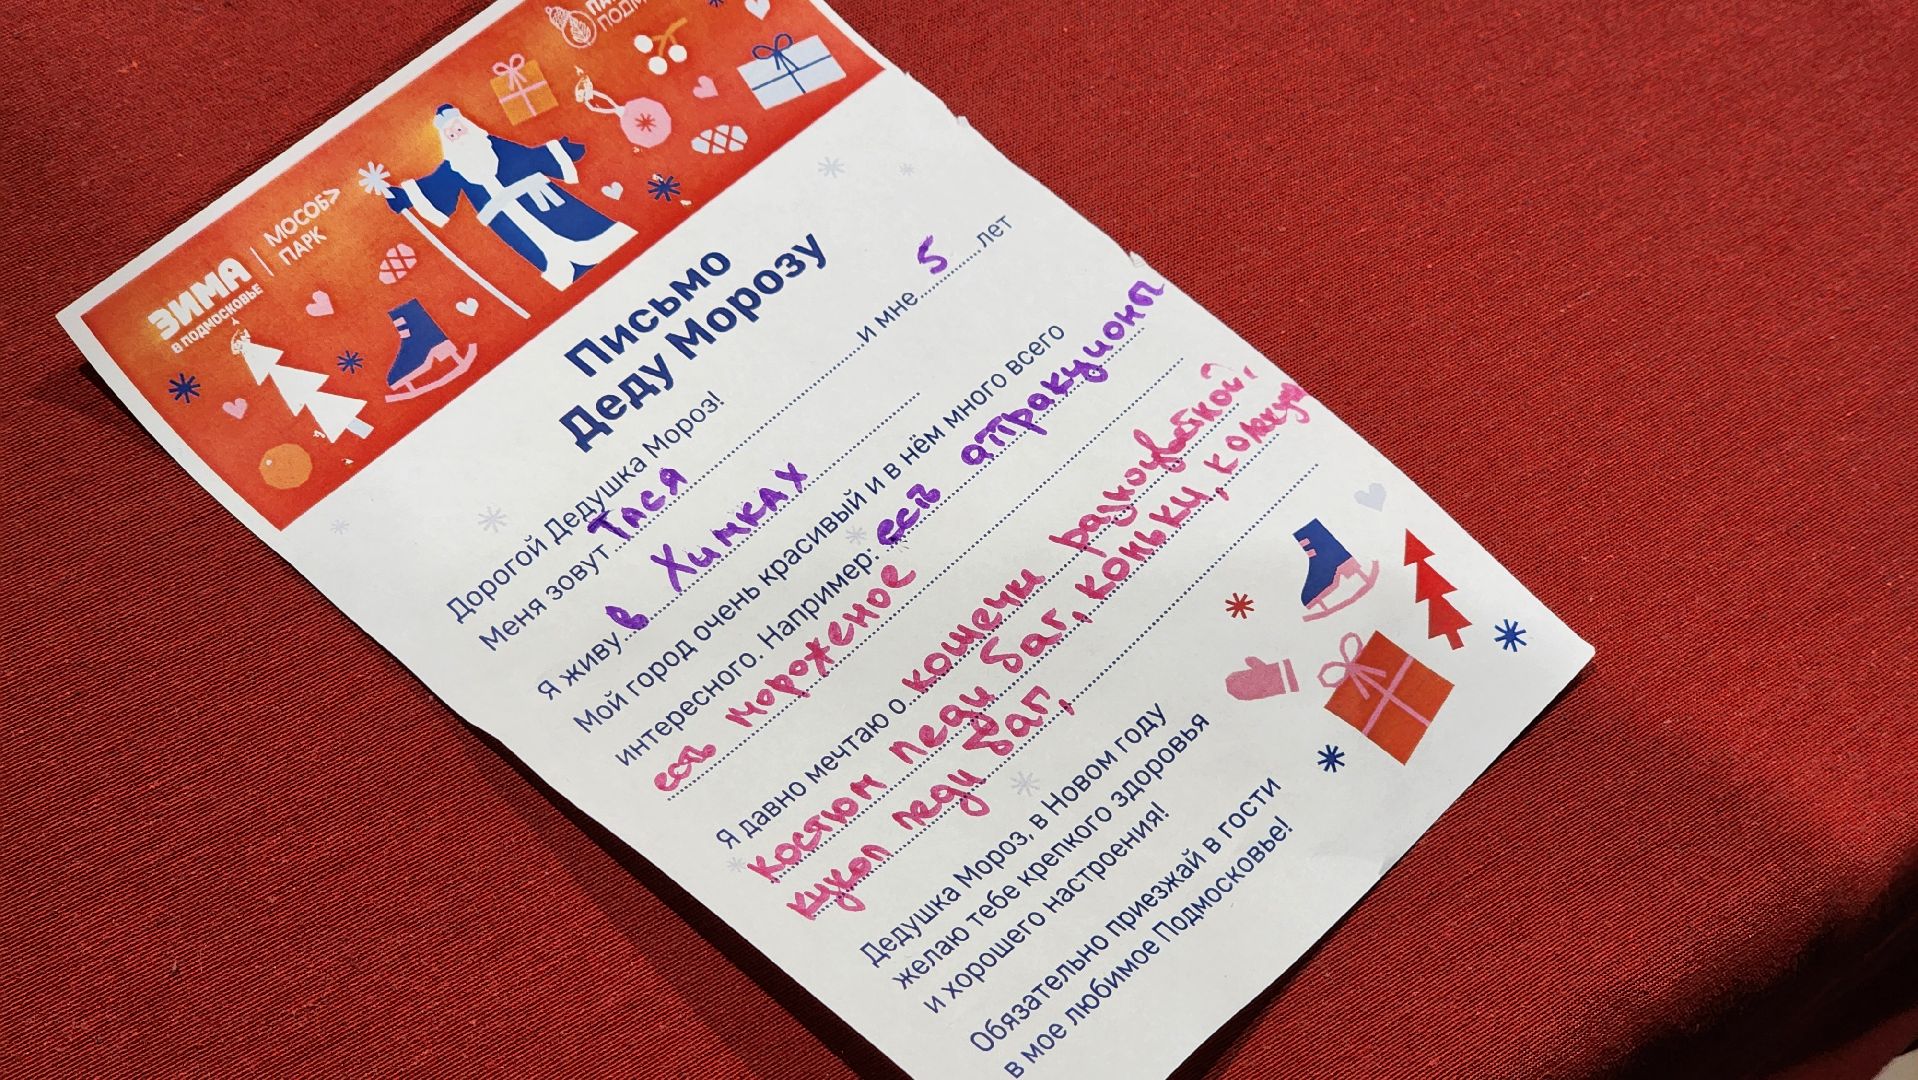 ЗИМА
В ПОДМОСКОВЬЕ
МОСОБЛ
ПАРК
Письмо
Деду Морозу
Дорогой Дедушка Мороз!
Меня зовут Тася и мне 5 лет
Я живу в Химках
Мой город очень красивый и в нём много всего
интересного. Например: есть атракциона
есть мороженое
Я давно мечтаю о кошечки разноцветкой,
костюм леди баг, коньки,
кукол леди баг,
Дедушка Мороз, в Новом году
желаю тебе крепкого здоровья
и хорошего настроения!
Обязательно приезжай в гости
в мое любимое Подмосковье!